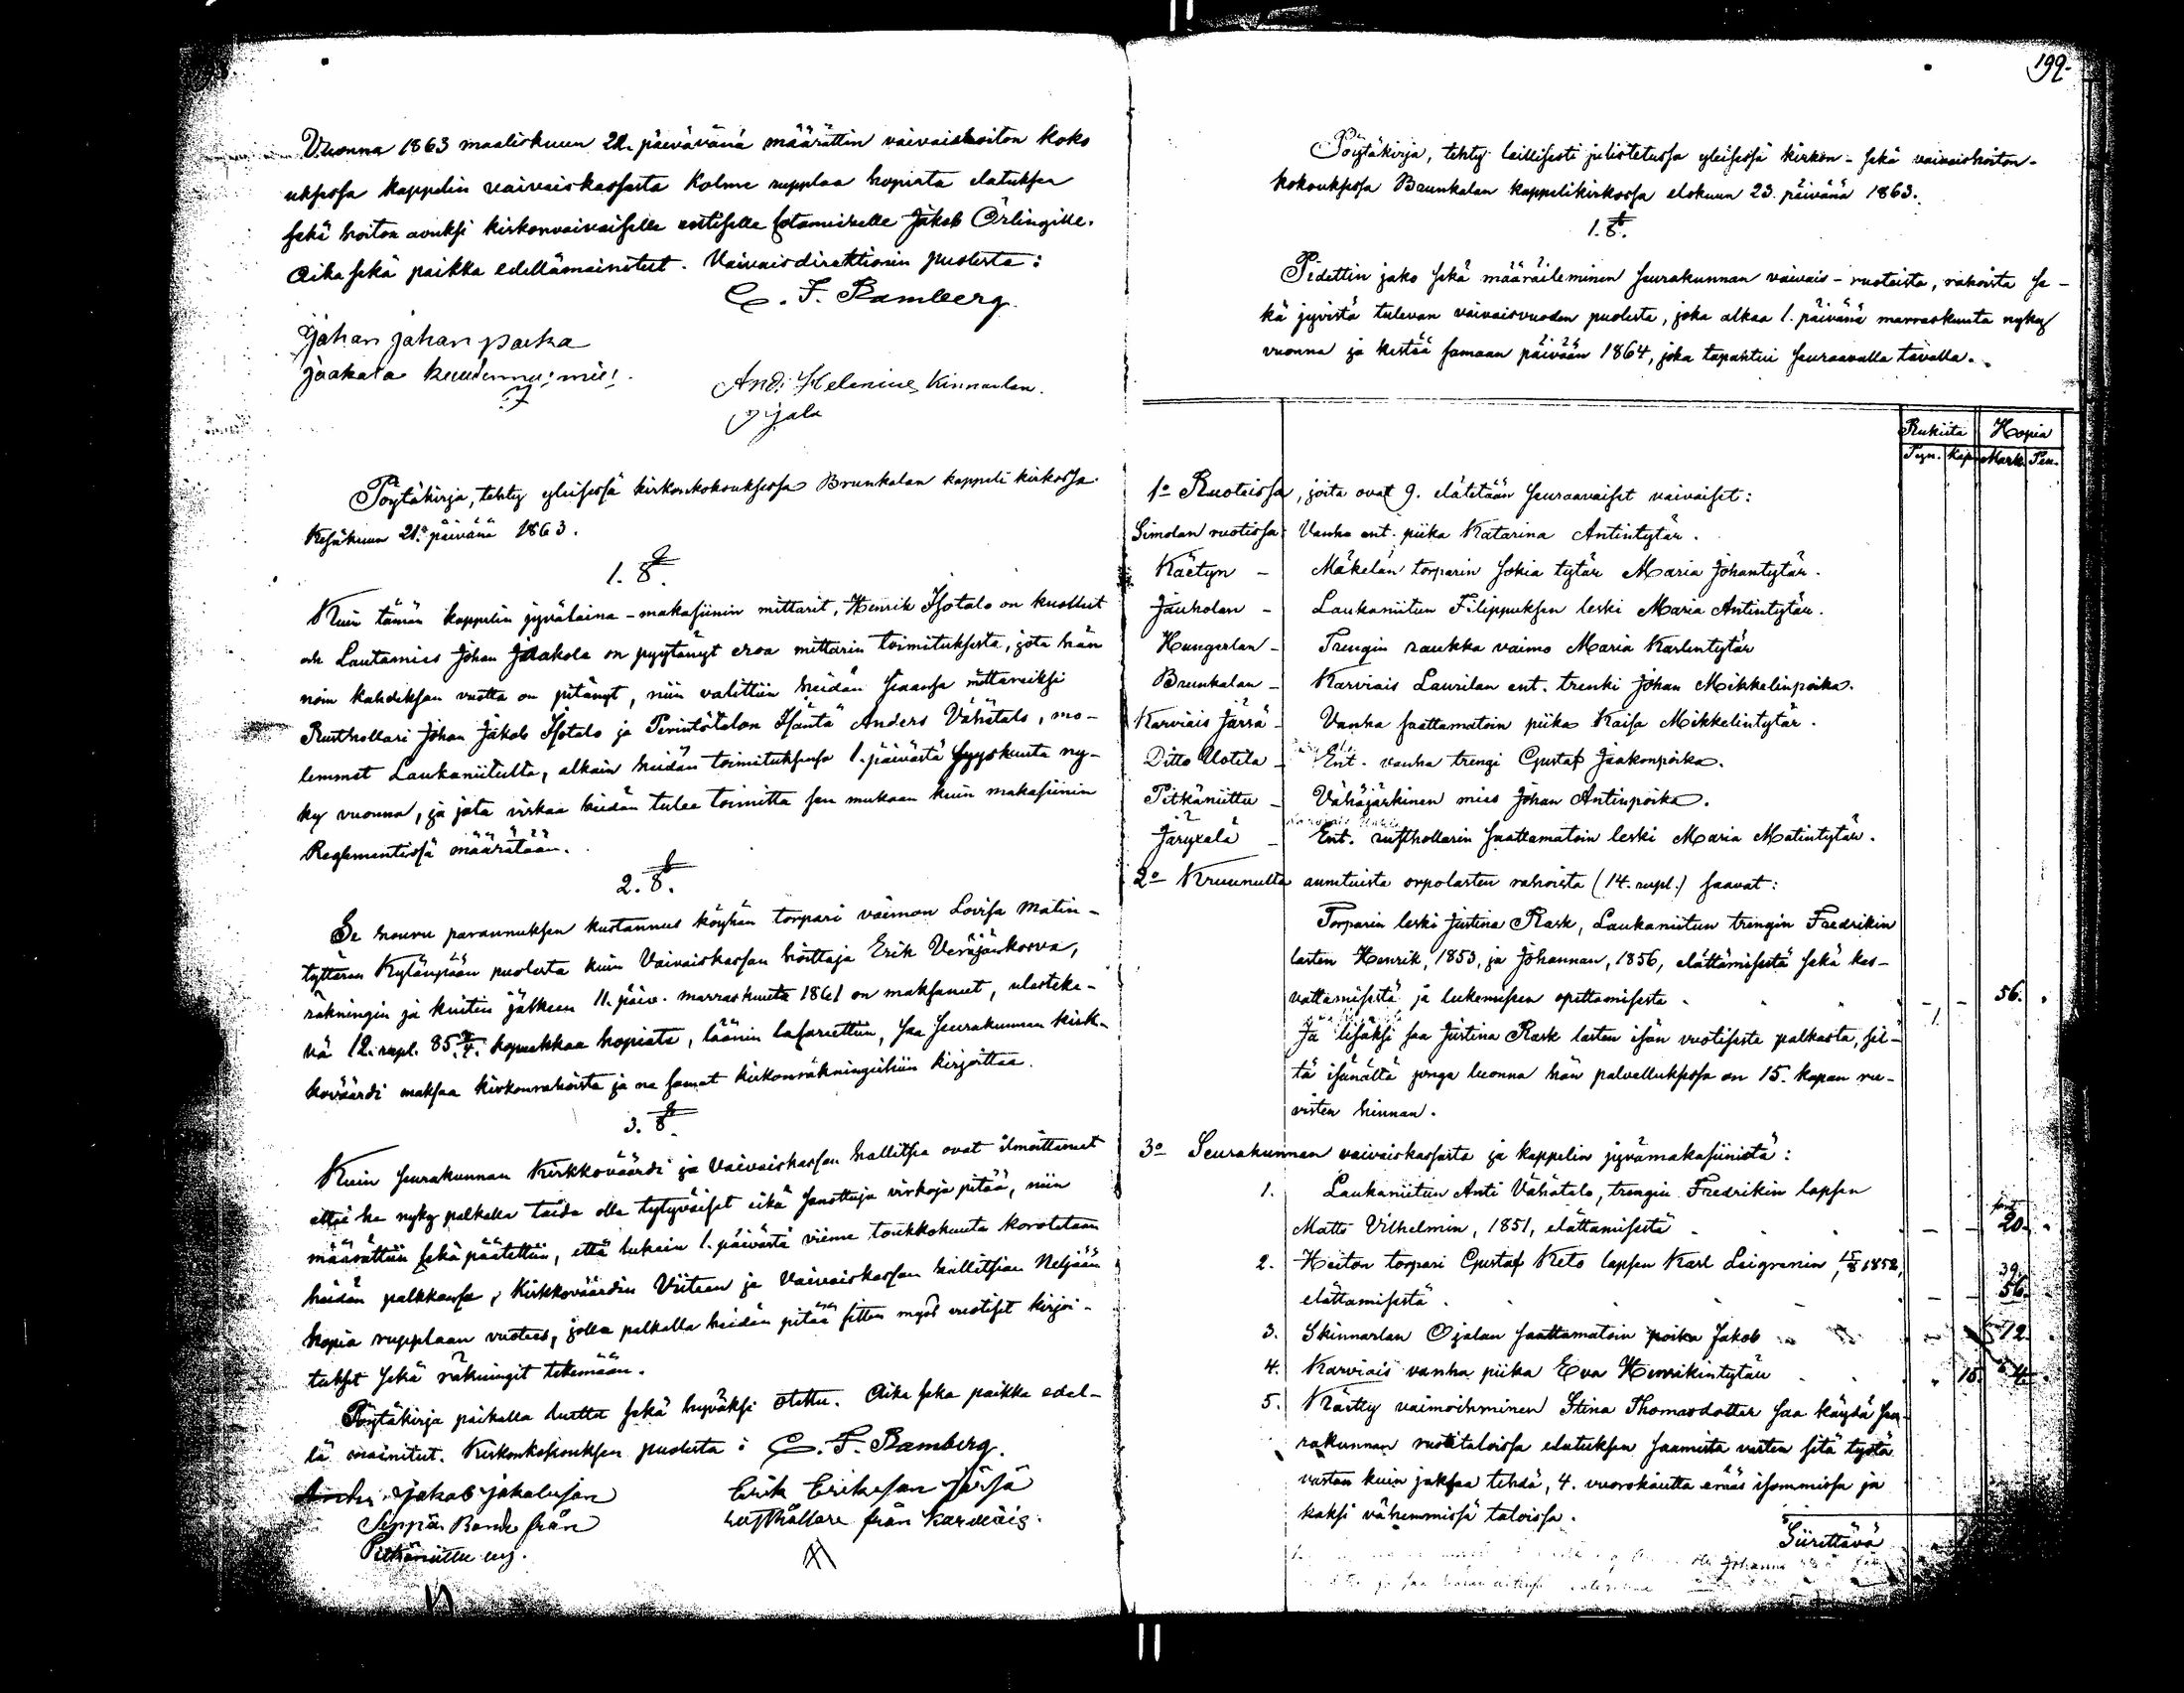 Vuonna 1863 maaliskuun 22. päivävänä määrättin vaivaishoiton koko
uksessa kappelin vaivaiskassasta Kolme rupplaa hopiata elatuksen
sekä hoiton avuksi kirkonvaivaiselle entiselle sotamiehelle Jakob Örlingille.
Aika sekä paikka edellämainitut. Vaivaisdirektionin puolesta:
C. F. Ramberg.
Johan Johan poika
Jaakala
And: Helenius Kinnarlan.
Ojala
Pöytäkirja, tehty yleisessä kirkonkokouksessa Brunkalan kappeli kirkossa
Kesäkuun 21. päivänä 1863.
1. §.
Kuin tämän kappelin jyvälaina-makasiinin mittarit, Henrik Isotalo on kuollut
ock Lautamies Johan Jaakola on pyytänyt eroa mittarin toimituksesta, jota hän
noin kahdeksan vuotta on pitänyt, niin valittiin heidän siaansa mittareiksi
Rusthollari Johan Jakob Isotalo ja Perintötalon Isäntä Anders Vähätalo, mo-
lemmat Laukaniitulta, alkain heidän toimituksensa 1. päivästä syyskuuta ny-
ky vuonna, ja jota virkaa heidän tulee toimitta sen mukaan kuin makasiinin
Reglementissä määrätään.
2. §.
Se houru parannuksen kustannus köyhän torpari vaimon Lovisa Matin-
tyttären Kylänpään puolesta kuin Vaivaiskassan hoittaja Erik Veräjänkorva,
räkningin ja kuitin jälkeen 11. päiv. marraskuuta 1861 on maksanut, ulosteke-
vä 12. rupl. 85. 3/4. kopeekkaa hopiata, läänin lasarettiin, saa seurakunnan kirk-
kovääri maksaa kirkonrahoista ja ne samat kirkonräkningihiin kirjoittaa.
3. §.
Kuin seurakunnan Kirkkoväärdi ja Vaivaiskassan hallitsia ovat ilmoittaneet
ettei he nyky palkalla taida olla tytyväiset eikä sanottuja virkoja pitää, niin
määrättiin sekä päätettiin, että lukein 1. päivästä viime toukkokuuta korotetaan
heidän palkkansa, Kirkkoväärdin Viiteen ja Vaivaiskassan hallitsian Neljään
hopia rupplaan vuotees, jolla palkalla heidän pitää sitten myös vuotiset kirjoi-
tukset sekä räkningit tekemään.
Pöytäkirja paikalla luettu sekä hyväksi otettu. Aika seka paikka edel-
lä mainitut. Kirkonkokouksen puolesta: C. F. Ramberg.
Jakob Jakobsson
Erik Eriksson Järsä
Seppä Bonde från
rusthållare från Karviais.
Pitkäniittu
199.
Pöytäkirja, tehty laillisesti julistetussa yleisessä kirkon- sekä vaivaishoiton-
kokouksessa Brunkalan kappelikirkossa elokuun 23. päivänä 1863.
1. §.
Pidettin jako sekä määräileminen seurakunnan vaivais-ruoteista, rahoista se-
kä jyvistä tulevan vaivaisvuoden puolesta, joka alkaa 1. päivänä marraskuuta nyky
vuonna ja kestää samaan päivään 1864, joka tapahtui seuraavalla tavalla.
Rukiita Hopia
Tyn. Kap. Mark. Pen.
1o Ruoteissa, joita ovat 9. elätetään seuraavaiset vaivaiset:
Simolan ruotissa: Vanha ent. piika Katarina Antintytär.
Käetyn - Mäkelän torparin sokia tytär Maria Johantytär.
Jauholan - Laukaniitun Filippuksen leski Maria Antintytär.
Hungerlan - Trengin raukka vaimo Maria Karlentytär
Brunkalan - Karviais Laurilan ent. trenki Johan Mikkelinpoika.
Karviais Järsä - Vanha saattamatoin piika Kaisa Mikkelintytär.
Ditto Uotila - Ent. vanha trengi Gustaf Jaakonpoika.
Pitkäniittu - Vähäjärkinen mies Johan Antinpoika.
Järyxelä - Ent. rusthollarin saattamatoin leski Maria Matintytär.
2o Kruunulta annetuista orpolasten rahoista (14. rupl.) saavat:
Torparin leski Justina Rask, Laukaniitun trengin Fredrikin
lasten Henrik, 1853, ja Johannan, 1856, elättämisestä sekä kas-
vattamisesta ja lukemisen opettamisesta - - 56.
Ja lisäksi saa Justina Rask lasten isän vuotisesta palkasta, sil-
tä isännältä jonga luonna hän palvelluksessa on 15. kapan ru-
visten hinnan.
3o Seurakunnan vaivaiskassasta ja kappelin jyvämakasiinistä:
1. Laukaniitun Anti Vähätalo, trengin Fredrikin lapsen
Matts Vilhelmin, 1851, elättamisestä - - 20.
2. Heiton torpari Gustaf Keto lapsen Karl Leigrenin, 15/8 1852,
elättamisestä - - 56.
3. Skinnarlan Ojalan saattamatoin poika Jakob - 12
4. Karviais vanha piika Eva Henrikintytär 15. 4.
5. Käetty vaimoihminen Stina Thomasdotter saa käydä seu-
rakunnan ruotitaloissa elatuksen saamista vasten sitä työtä
vastaan kuin jaksaa tehdä, 4. vuorokautta eräås isommissa ja
kaksi vähemmissä taloissa.
Siirettävä
Johanna